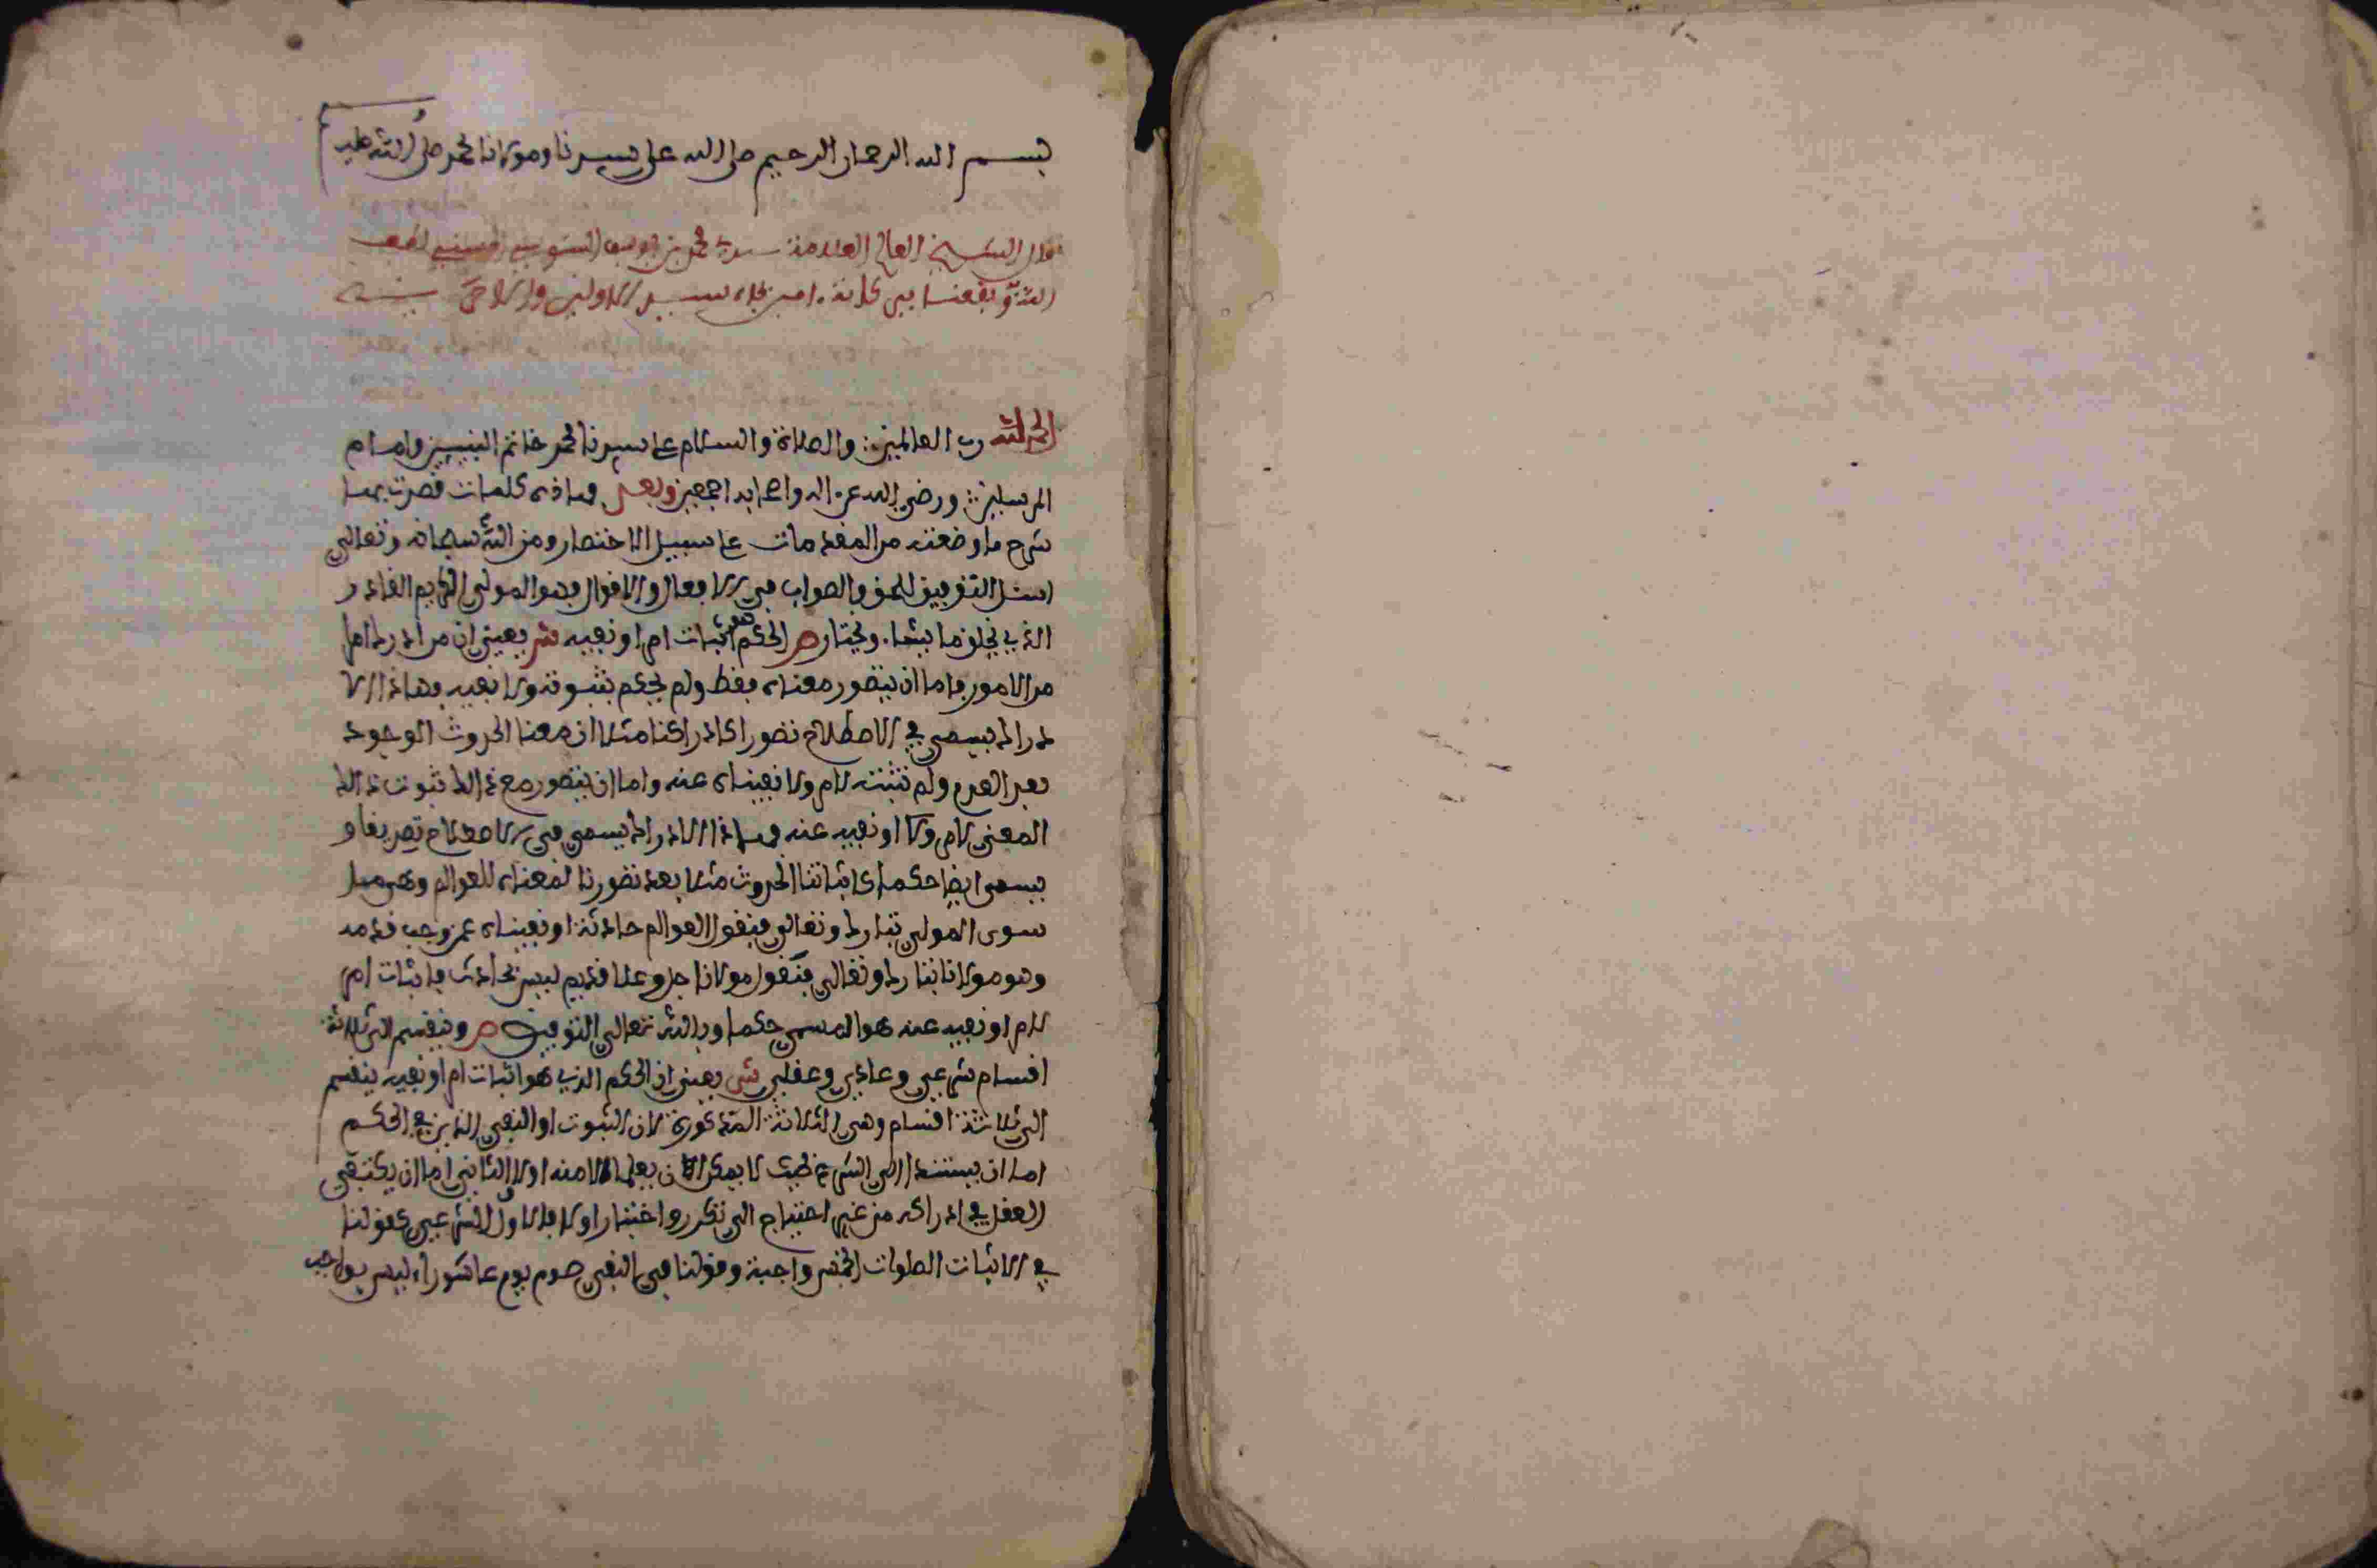 بسم الله الرحمان الرحيم صلى الله على سيدنا ومولانا محمد صلى الله عليه
قال الشيخ العالم العلامة سيدي محمد بن يوسف السنوسي الحسني لطف
الله ونفعنا ببركاته امين بجاه سيد الاولين والاخرين
الحمد لله رب العالمين والصلاة والسلام على سيدنا محمد خاتم النبيين وامام
المرسلين ورضي الله عن اله واصحابه اجمعين وبعد فهاذه كلمات قصدت بها
شرح ما وضعته من المقدمات على سبيل الاختصار ومن الله سبحانه وتعالى
اسئل التوفيق للحق والصواب في الافعال والاقوال وهو المولى الكريم القادر
الذي يخلق ما يشاء ويختار ص الحكم هو اثبات امر او نفيه ش يعني ان من ادرك امرا
من الامور فاما ان يتصور معناه فقط ولم يحكم بثبوته ولا نفيه فهاذا الا
دراك يسمى في الاصطلاح تصورا كادراكنا مثلا ان معنا الحدوث الوجود
بعد العدم ولم نثبته لامر ولا نفيناه عنه واما ان يتصور مع ذالك ثبوت ذالك
المعنى لامر ولا او نفيه عنه فهاذا الادراك يسمى في الاصطلاح تصديقا و
يسمى ايضا حكما كاثباتنا الحدوث مثلا بعد تصورنا لمعناه للعوالم وهي ما
سوى المولى تبارك وتعالى فنقول العوالم حادثة او نفيناه عمن وجب قدمه
وهو مولانا تبارك وتعالى فنقول مولانا جل وعلا قديم ليس بحادث فاثبات امر
لامر او نفيه عنه هو المسمى حكما وبالله تعالى التوفيق ص وينقسم الى ثلاثة
اقسام شرعي وعادي وعقلي ش يعني ان الحكم الذي هو اثبات امر او نفيه ينقسم
الى ثلاثة اقسام وهي الثلاثة المذكورة لان الثبوت او النفي الذين في الحكم
اما ان يستند الى الشرع بحيث لا يمكن ان يعلم الا منه او لا الثاني اما ان يكتفي
العقل في ادراكه من غير احتياج الى تكرر واختبار او لا فالاول الشرعي كقولنا
في الاثبات الصلوات الخمس واجبة وقولنا في النفي صوم يوم عاشوراء ليس بواجب